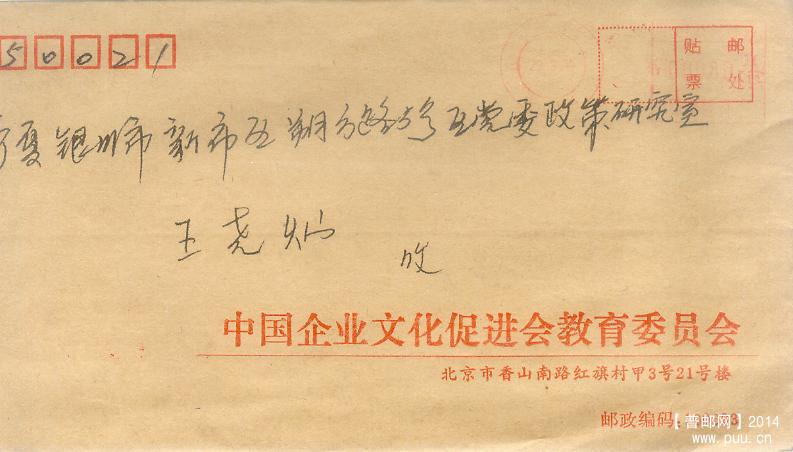 50021
贴 邮
票 处
夏银川市新市区朔方路5号区党委政策研究室
王尧灿 收
中国企业文化促进会教育委员会
北京市香山南路红旗村甲3号21号楼
邮政编码:
【普邮网】2014
www.puu.cn